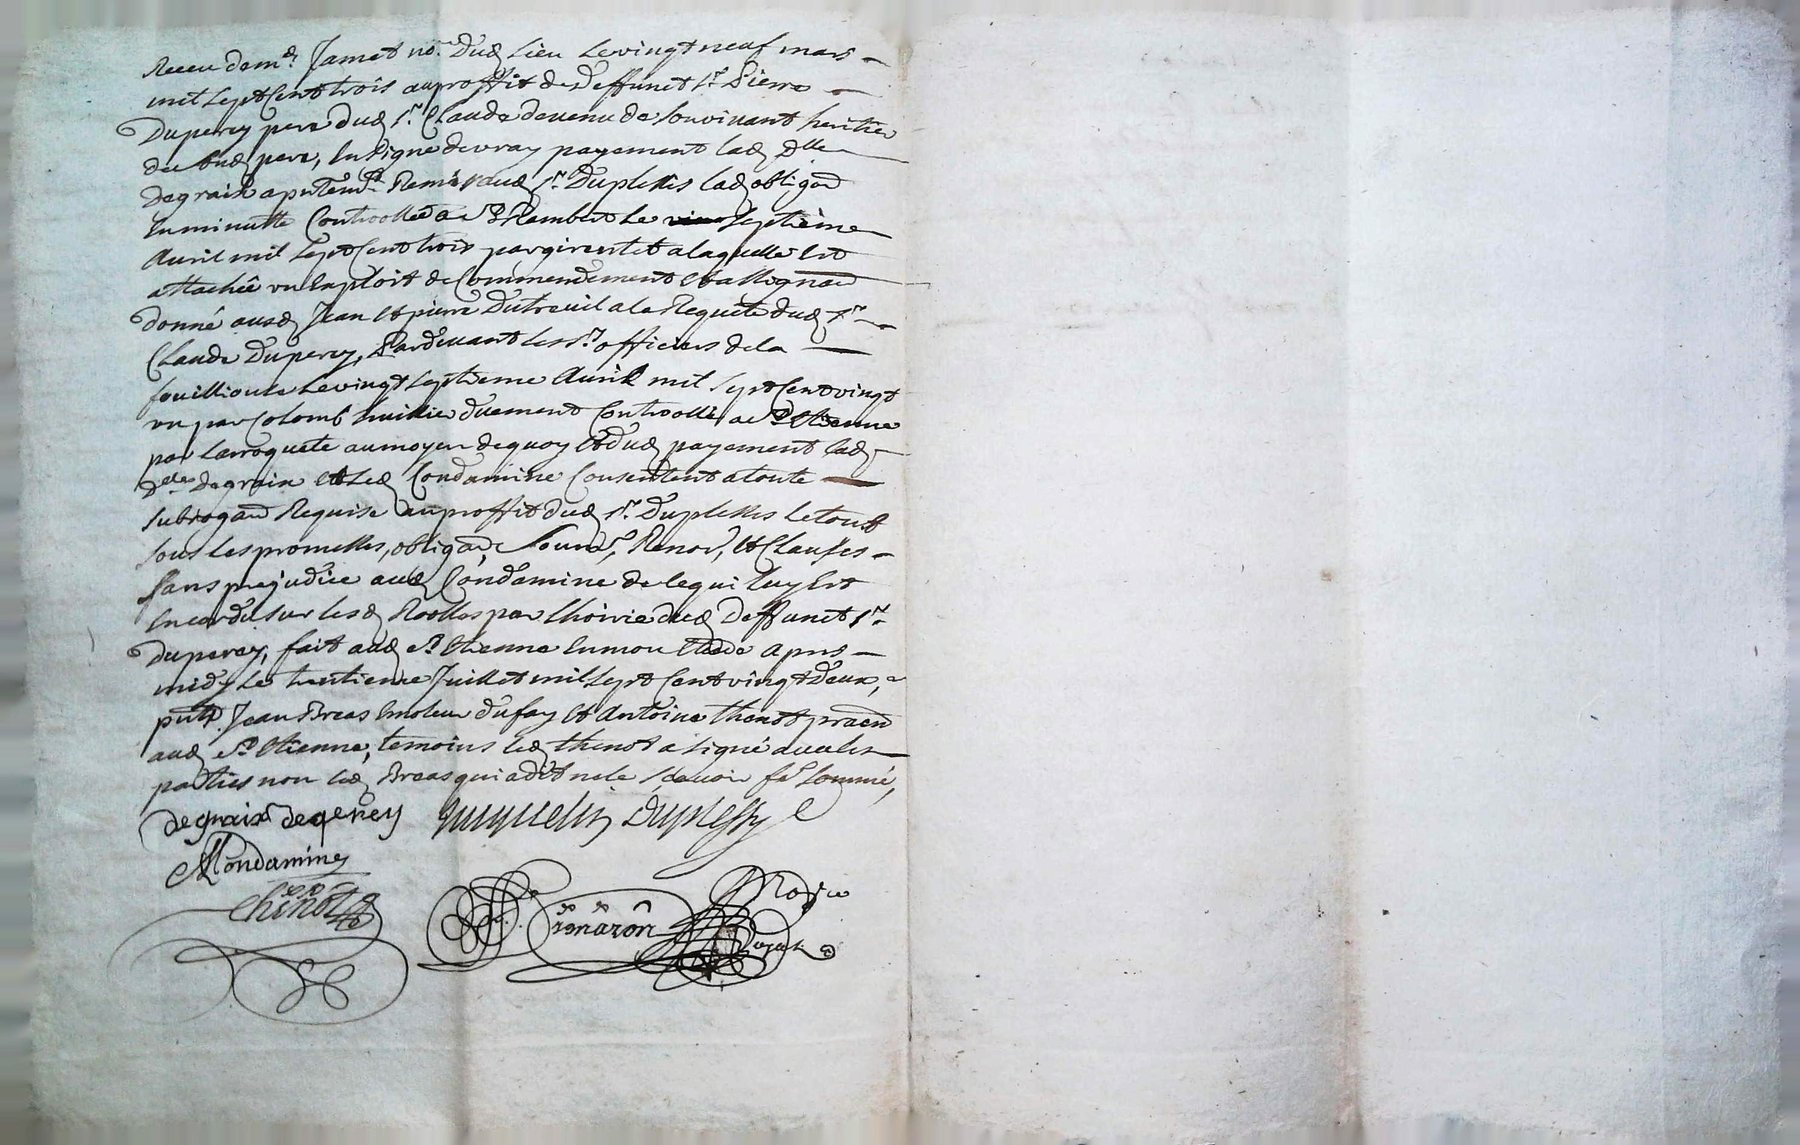 Receu de me Jamet nore dud lieu le vingt neuf mars
mil sept cent trois au proffit de deffunct sr Pierre
Duperey pere dud sr Claude devenu de son vivant heritier
de sud pere, en signe de vray payement lad dlle
Degraix a puteme Remis aud sr Duplessis lad obligaon
en minutte Controollée a St Rambert le septième
Avril mil sept cent trois par girentet a laquelle est
attachée un exploit de Commendement et assignaon
donné ausd Jean et pierre Dutreuil a la Requete dud sr
Claude Duperey, Pardevant les srs officiers de la
fouilliouse le vingt septieme Avril mil sept cent vingt
un par Colomb huissier duement Controollé a St Etienne
par Larroquete au moyen de quoy et dud payement lad
dlle Degraix et led Condamine Consentent a toute
subrogaon Requise au proffit dud sr Duplessis le tout
sous les promesses, obligaon, Renon, et Clauses
sans prejudice aud Condamine de le qui luy est
encor du sur lesd Roolles par lhoirie dud deffunct sr
Duperey, fait aud St Etienne en mon etude apres
midy le trentieme Juillet mil sept cent vingt deux,
pnts Jean Breas emoleur du fay et Antoine thenot praen
aud St Etienne, temoins led thenot a signé avec les
parties non led Breas qui a dit ne le scavoir fe sommé,
degraix degerey Juquelin Duplessy
MCondamine
thenot
fromaron